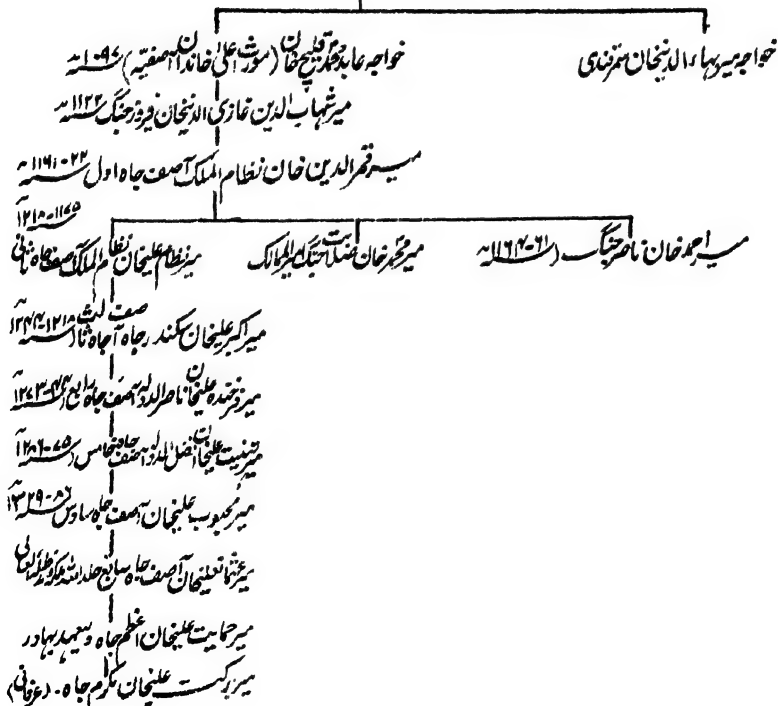 خواجہ میر بہاء الدینخان سمرقندی
خواجہ عابد محمد قلیچ خان (مورث اعلیٰ خاندان آصفیہ) سنہ ۱۰۹۷ھ
میر شہاب الدین غازی الدینخان فیروز جنگ سنہ ۱۱۲۲ھ
میر قمر الدین خان نظام الملک آصف جاہ اول ۲۲-۱۱۶۱ سنہ ھ
میر احمد خان ناصر جنگ (۶۱-۱۱۶۴ سنہ ھ
میر محمد خان صلابت جنگ امیر الممالک
میر نظام علیخان نظام الملک آصف جاہ ثانی ۱۱۷۵-۱۲۱۸ سنہ
میر اکبر علیخان سکندر جاہ آصف جاہ ثالث ۱۲۱۸-۱۲۴۴ سنہ
میر فرخندہ علیخان ناصر الدولہ آصف جاہ رابع (۴۴-۱۲۷۳ سنہ
میر تہنیت علیخان افضل الدولہ آصف جاہ خامس (۷۵-۱۲۸۶ سنہ
میر محبوب علیخان آصف جاہ سادس ۸۶-۱۳۲۹ سنہ
میر عثمان علیخان آصف جاہ سابع خلد اللہ ملکہ
میر حمایت علیخان اعظم جاہ ولیعہد بہادر
میر برکت علیخان مکرم جاہ - (عرفانی)